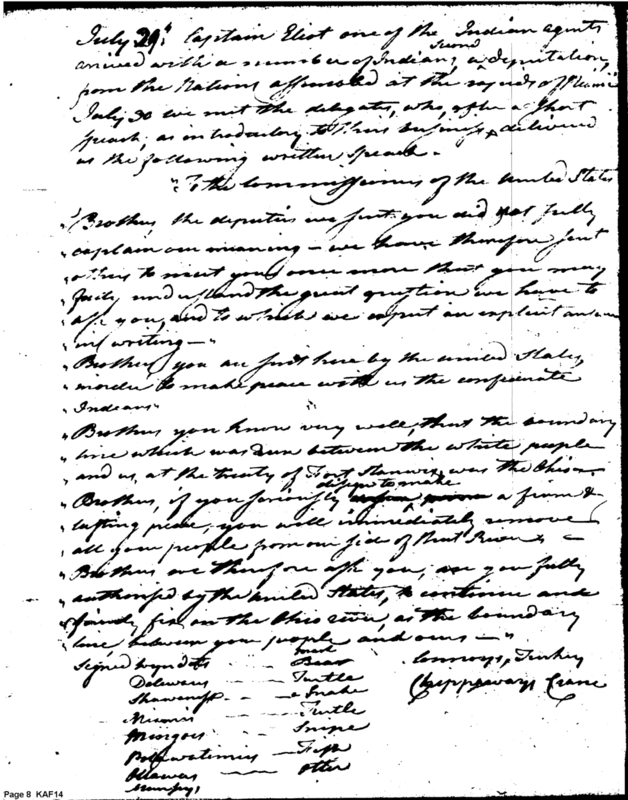 July 29th. Captain Eliot one of the Indian agents
arrived with a number of Indians, a second deputation,
from the Nations assembled at the rapids of Miami
July 30 we met the delegates, who, after a short
speech, as introductory to their business, delivered
us the following written speech.
"To the Commissioners of the United States
"Brothers, the deputies we sent you did not fully
" explain our meaning — we have therefore sent
" others to meet you once more that you may
" fully understand the great question we have to
" ask you, and to which we expect an explicit answer
" in writing —"
"Brothers, you are sent here by the united States,
" in order to make peace with us the confederate
" Indians"
"Brothers you know very well, that the boundary
" line which was run between the white people
" and us, at the treaty of Fort Stanwix, was the Ohio —
" Brothers, if you seriously design to make a firm &
" lasting peace, you will immediately remove
" all your people from our side of that River —
" Brothers we therefore ask you, are you fully
" authorised by the united States, to continue and
" firmly fix on the Ohio river, as the boundary
" line between your people and ours —"
Signed Wyndots — Bear Connoys, Turkey
Delewars — Turtle Chippeways Crane
Shawenose — a Snake
Miamis — Turtle
Mingoes — Snipe
Pottawatimies — Fish
Ottawas — Otter
Munseys
Page 8 KAF14